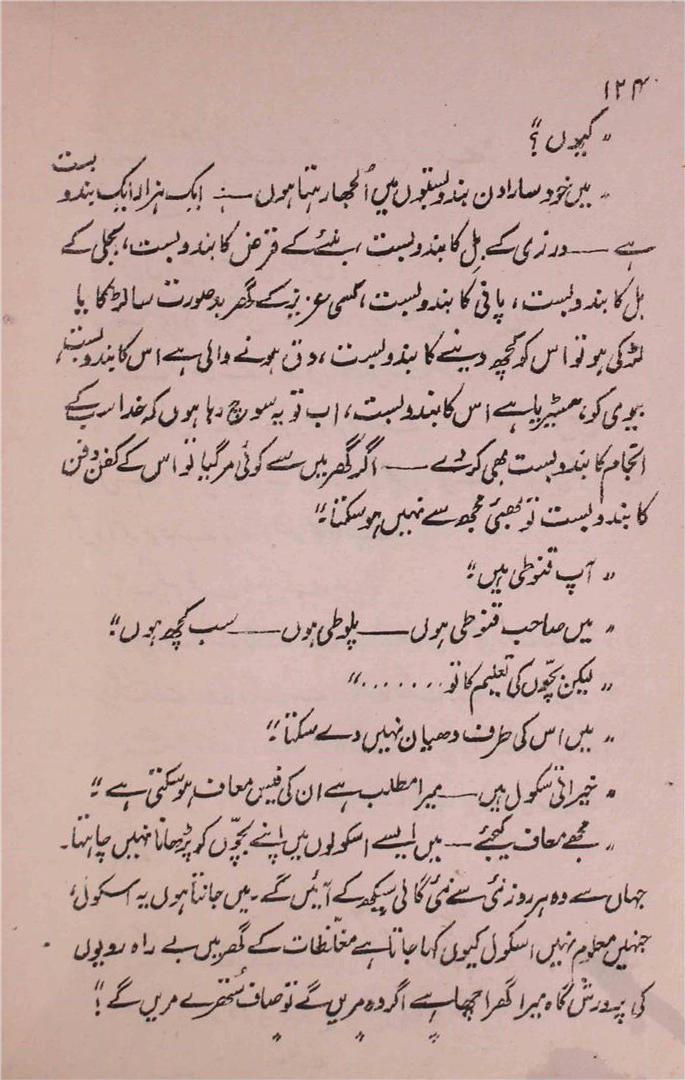 ۱۲۴
"کیوں؟"
"میں خود سارا دن بندوبستوں میں اُلجھا رہتا ہوں ـــ ایک ہزار ایک بندوبست
ہے ـــ درزی کے بل کا بندوبست، بنئے کے قرض کا بندوبست، بجلی کے
بل کا بندوبست، پانی کا بندوبست، کسی عزیز کے گھر بدصورت سا لڑکا یا
لڑکی ہو تو اس کو کچھ دینے کا بندوبست، دق ہونے والی ہے اس کا بندوبست،
بیوی کو ہسٹیریا ہے اس کا بندوبست، اب تو یہ سوچ رہا ہوں کہ خدا سب کے
انجام کا بندوبست بھی کر دے ـــ اگر گھر میں سے کوئی مر گیا تو اس کے کفن دفن
کا بندوبست تو بھئی مجھ سے نہیں ہو سکتا۔"
"آپ قنوطی ہیں۔"
"میں صاحب قنوطی ہوں ـــ پلوطی ہوں ـــ سب کچھ ہوں؛"
"لیکن بچّوں کی تعلیم کا تو . . . . . . ."
"میں اس کی طرف دھیان نہیں دے سکتا۔"
"خیراتی سکول ہیں ـــ میرا مطلب ہے ان کی فیس معاف ہو سکتی ہے۔"
"مجھے معاف کیجئے ـــ میں ایسے اسکولوں میں اپنے بچّوں کو پڑھانا نہیں چاہتا۔
جہاں سے وہ ہر روز نئی سے نئی گالی سیکھ کے آئیں گے۔ میں جانتا ہوں یہ اسکول،
جنہیں معلوم نہیں اسکول کیوں کہا جاتا ہے مغلّظات کے گھر ہیں بے راہ رویوں
کی پرورش گاہ میرا گھر اچھا ہے اگر وہ مریں گے تو صاف سُتھرے مریں گے؟"